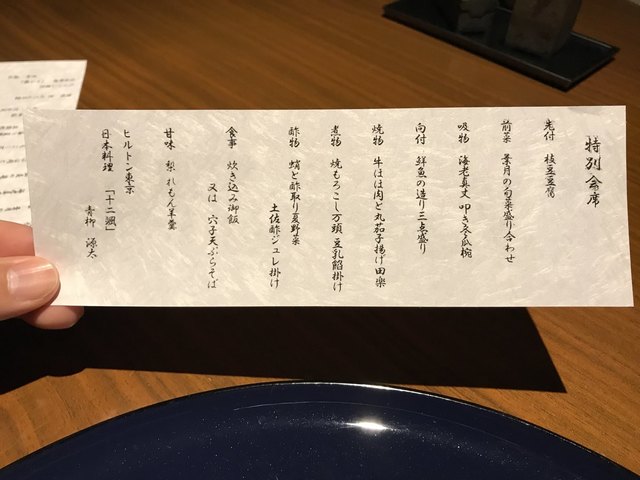 特別会席
先付 枝豆豆腐
前菜 葉月の旬菜盛り合わせ
吸物 海老真丈 叩き冬瓜椀
向付 鮮魚の造り三点盛り
焼物 牛ほほ肉と丸茄子揚げ田楽
煮物 焼もろこし万頭 豆乳餡掛け
酢物 蛸と酢取り夏野菜
土佐酢ジュレ掛け
食事 炊き込み御飯
又は 穴子天ぷらそば
甘味 梨 れもん羊羹
ヒルトン東京
日本料理 「十二颯」
青柳 源太